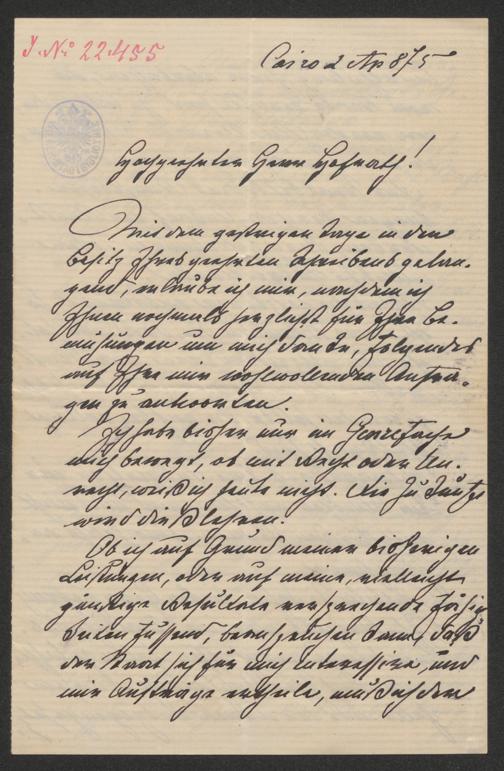 J. № 22455
Cairo 2 Ap 875
Hochgeehrter Herr Hofrath!
Mit dem gestrigen Tage in den
Besitz Ihres geehrten Schreibens gelan-
gend, erlaube ich mir, nachdem ich
Ihnen nochmals herzlichst für Ihre Be-
mühungen um mich danke, folgendes
auf Ihre mir wohlwollenden Anfra-
gen zu antworten.
Ich habe bisher nur im Genrefache
mich bewegt, ob mit Recht oder Un-
recht, weiß ich heute nicht. Die Zukunft
wird dieß lehren.
Ob ich auf Grund meiner bisherigen
Leistungen, oder auf meine, vielleicht
günstige Resultate versprechende Fähig-
keiten fussend, beanspruchen kann, daß
der Staat sich für mich interessire, und
mir Aufträge ertheile, muß ich dem